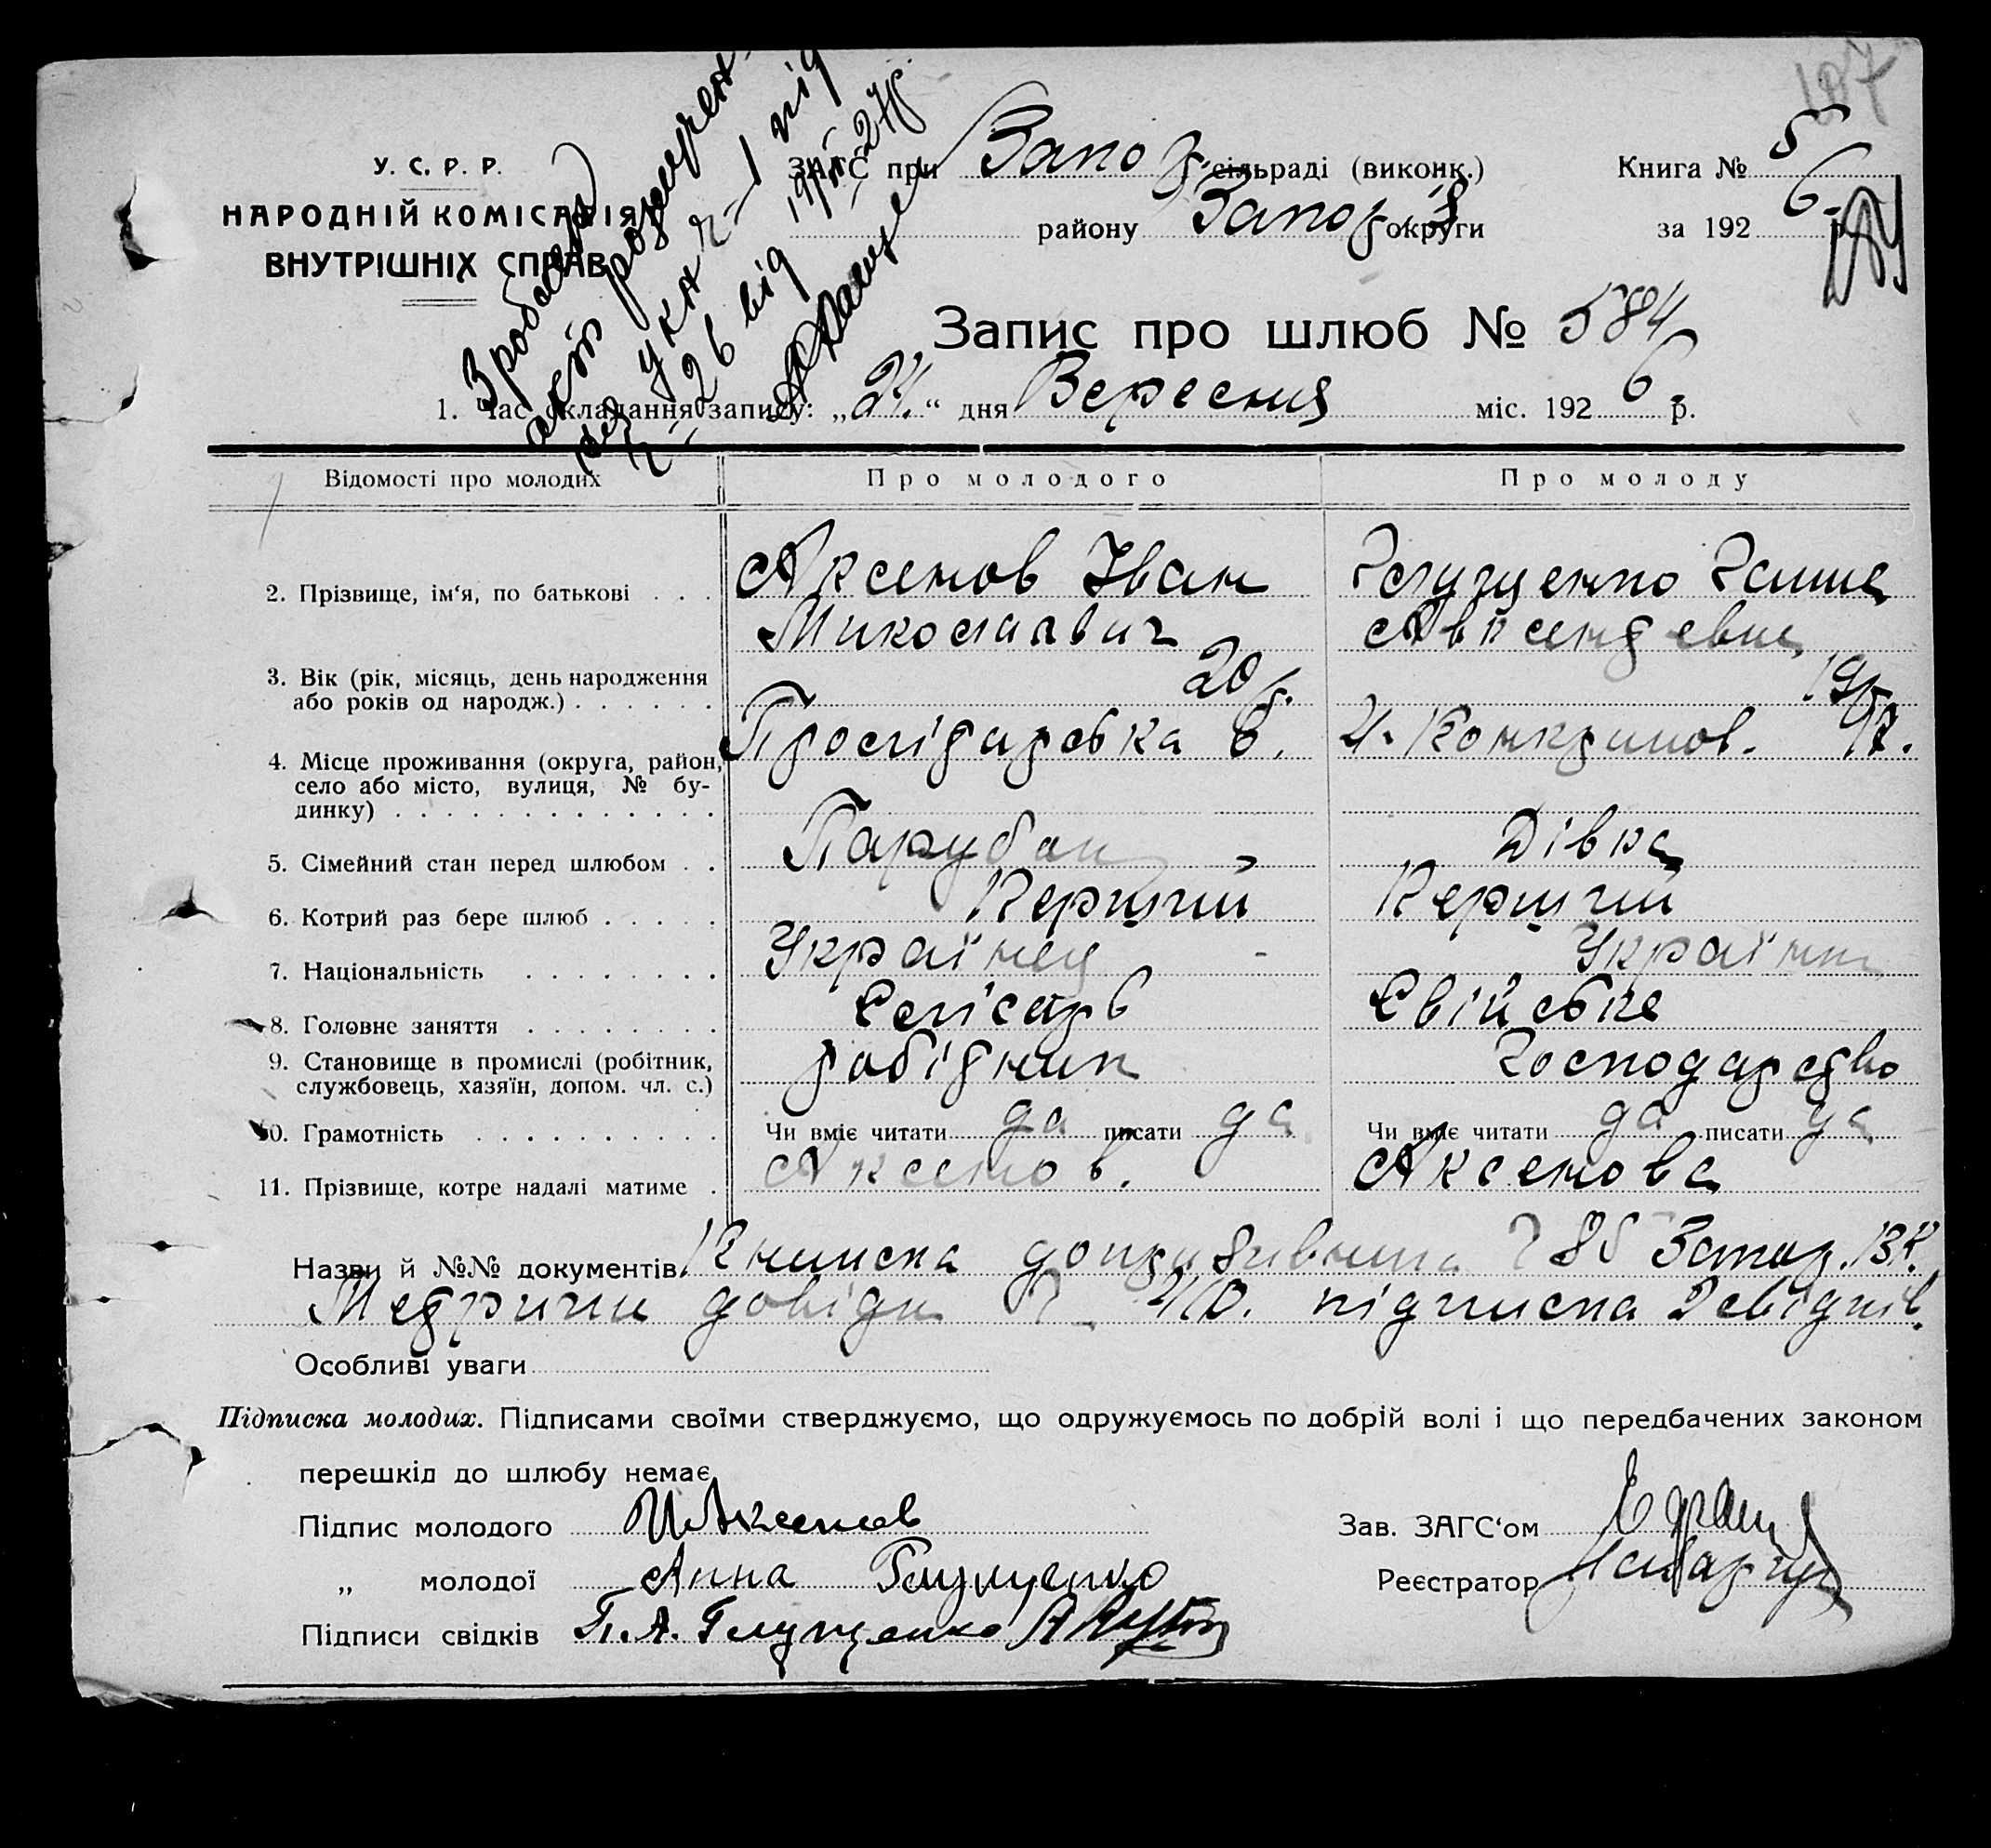 У. С. Р. Р.
НАРОДНІЙ КОМІСАРІЯТ
ВНУТРІШНІХ СПРАВ
ЗАГС при Запор. сільраді (виконк.)
району Запор. округи
Книга № 5
за 192 6
Запис про шлюб № 584
1. Час складання запису: „24“ дня Вересня міс. 192 6 р.
Відомості про молодих Про молодого Про молоду
2. Прізвище, ім‘я, по батькові . . . Аксенов Іван Глущенко Ганна
Миколаевич Авксентевна
3. Вік (рік, місяць, день народження
або років од народж.) . . . . . . 20 р. 19 р.
4. Місце проживання (округа, район,
село або місто, вулиця, № бу-
динку) . . . . . . . . . . . . .
5. Сімейний стан перед шлюбом . . Парубок Дівка
6. Котрий раз бере шлюб . . . . . Перший Перший
7. Національність . . . . . . . . Українец Українка
8. Головне заняття . . . . . . . . Слісарь Свійське
9. Становище в промислі (робітник,
службовець, хазяїн, допом. чл. с.) робітник Господарство
10. Грамотність . . . . . . . . . . Чи вміє читати да писати да Чи вміє читати да писати да
11. Прізвище, котре надалі матиме . Аксенов. Аксенова
Назви й №№ документів Книжка допризивника 785 Запор.
Метричні довідки підписка 2 свідків.
Особливі уваги
Підписка молодих. Підписами своїми стверджуємо, що одружуємось по добрій волі і що передбачених законом
перешкід до шлюбу немає
Підпис молодого И Аксенов
Зав. ЗАГС‘ом
„ молодої Анна Глущенко
Реєстратор
Підписи свідків П. А. Глущенко